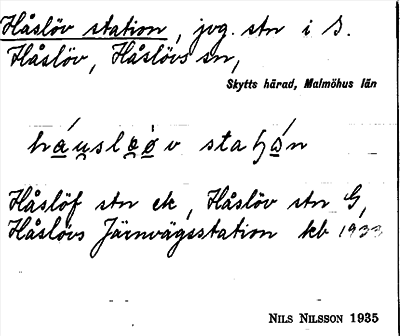 Håslöv station, jvg. stn i S.
Håslöv, Håslövs sn,
Skytts härad, Malmöhus län
Håslöf stn ek, Håslöv stn G,
Håslövs Järnvägsstation kb 1933
NILS NILSSON 1935